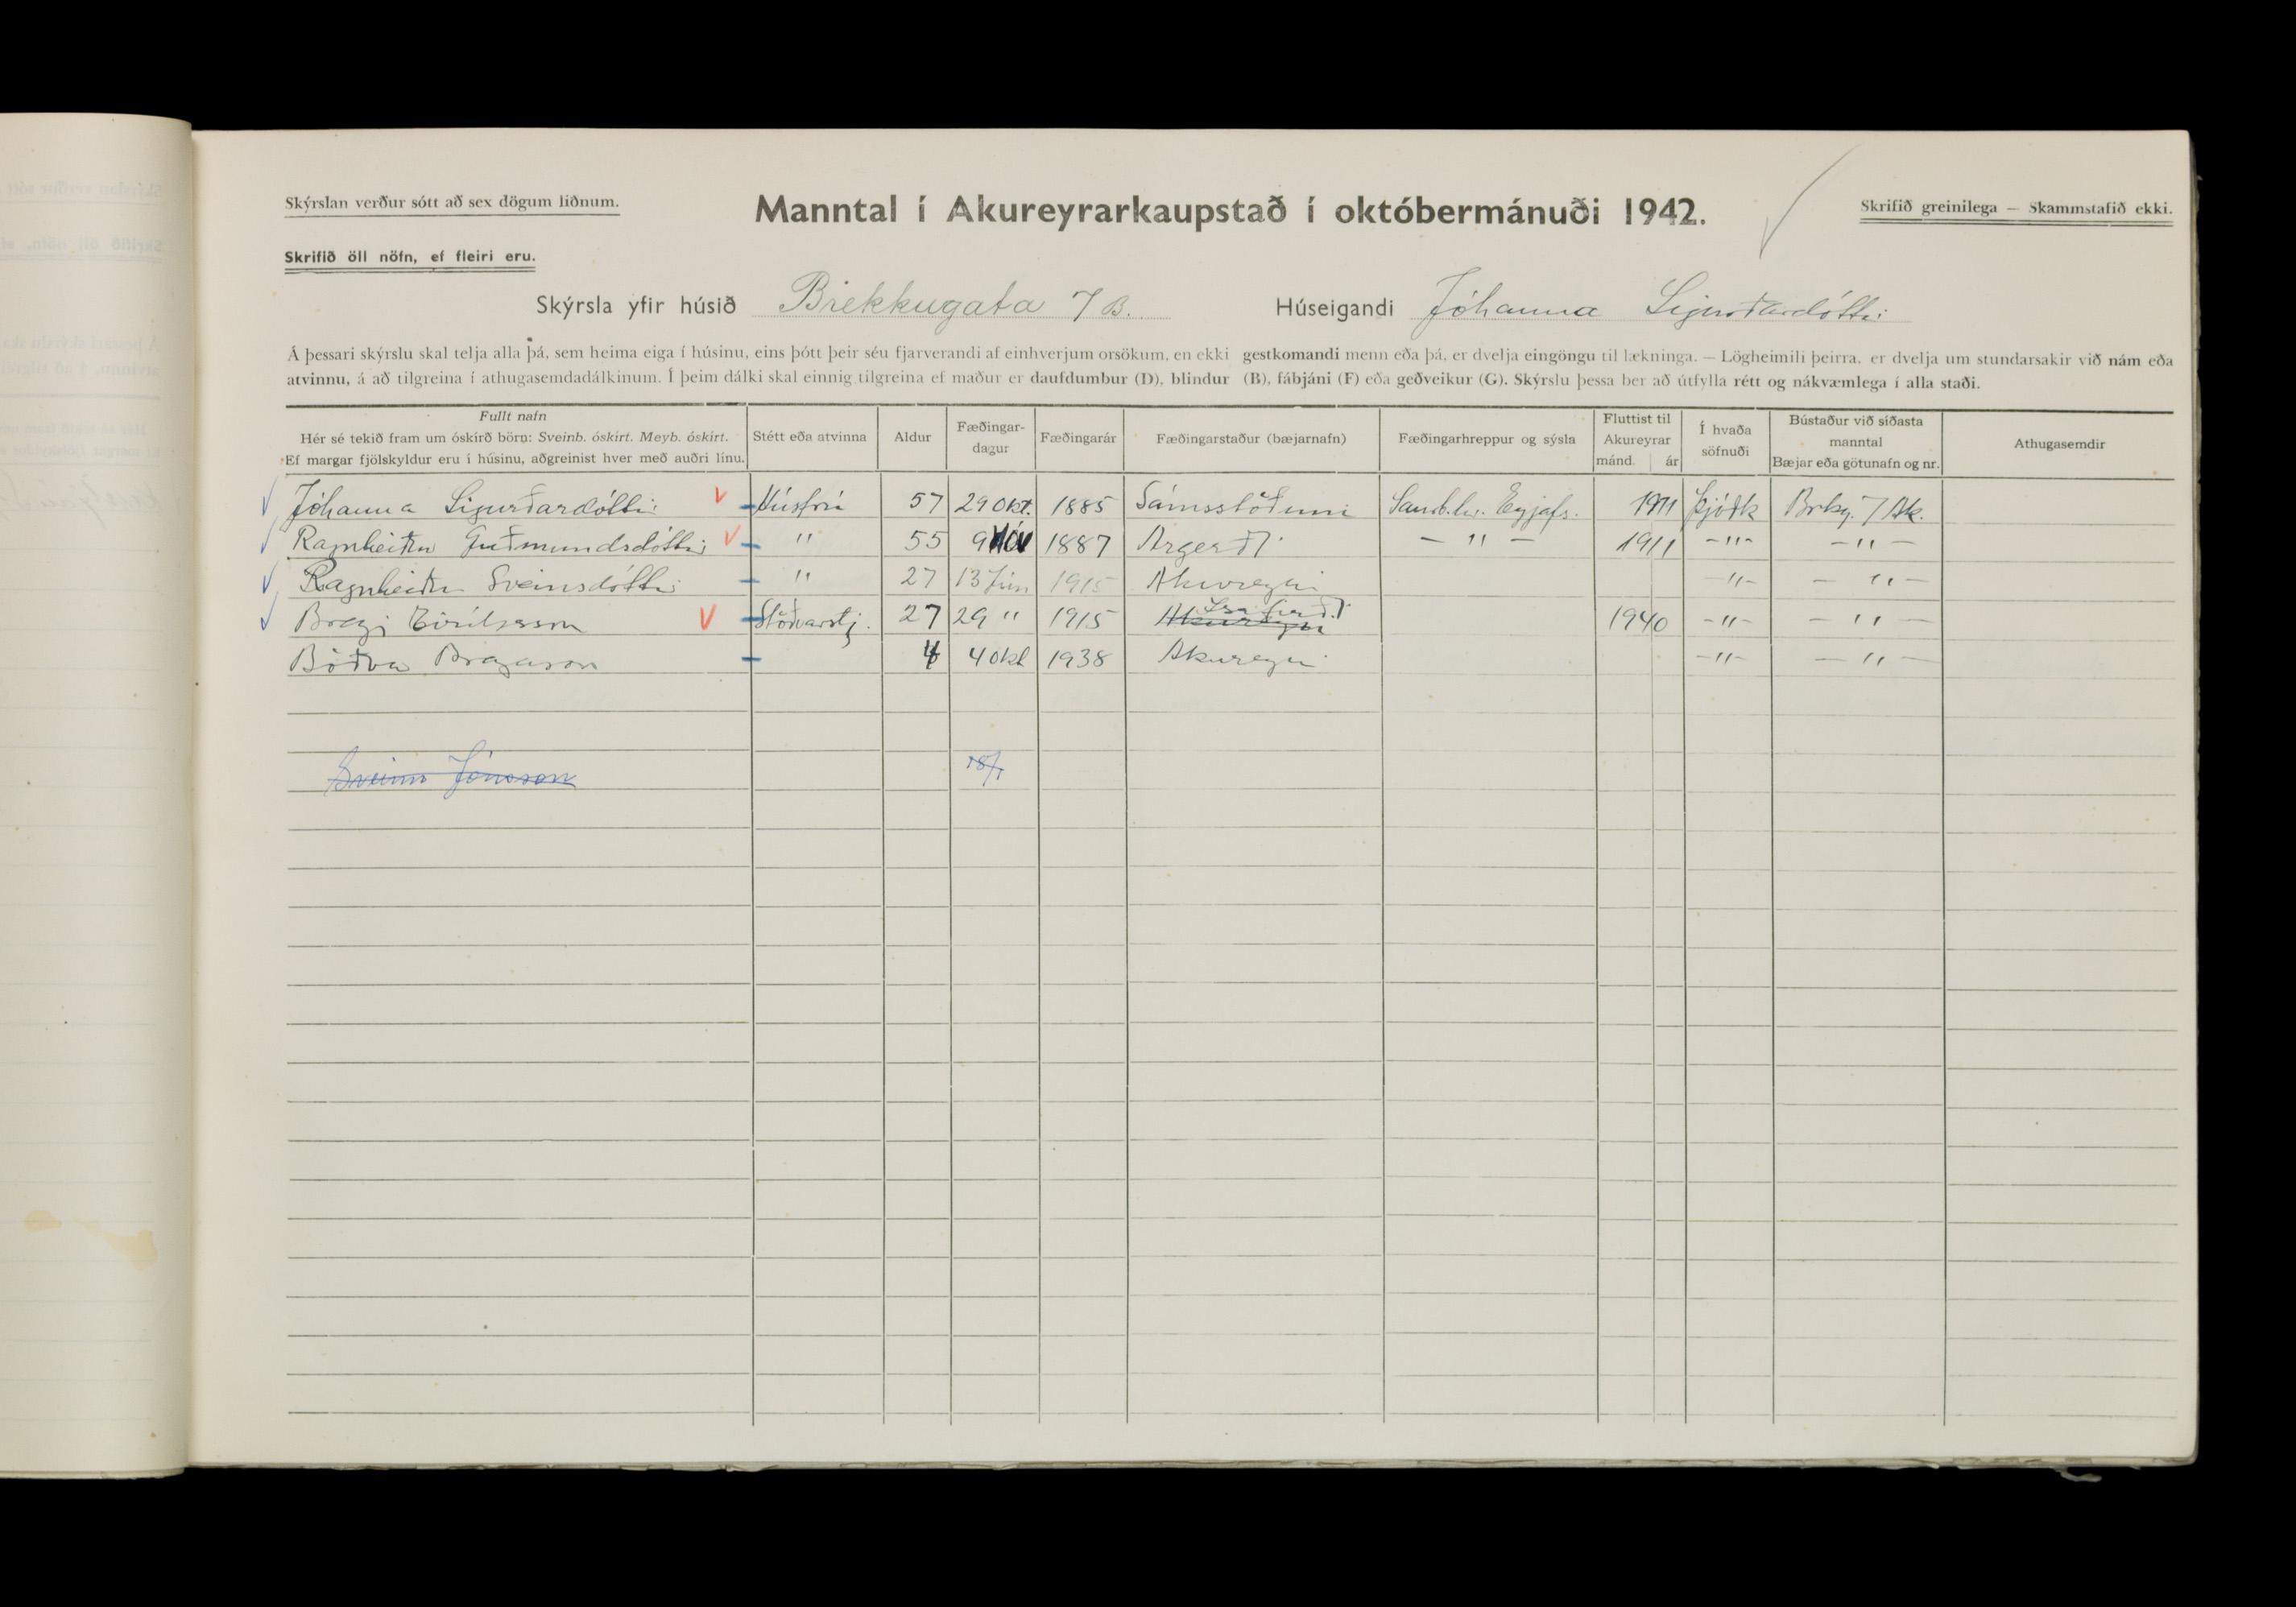 Skýrslan verður sótt að sex dögum liðnum.
Manntal í Akureyrarkaupstað í októbermánuði 1942.
Skrifið greinilega — Skammstafið ekki.
Skrifið öll nöfn, ef fleiri eru.
Skýrsla yfir húsið Brekkugata 7 B. Húseigandi Jóhanna Sigurðardóttir
Á þessari skýrslu skal telja alla þá, sem heima eiga í húsinu, eins þótt þeir séu fjarverandi af einhverjum orsökum, en ekki gestkomandi menn eða þá, er dvelja eingöngu til lækninga. — Lögheimili þeirra, er dvelja um stundarsakir við nám eða
atvinnu, á að tilgreina í athugasemdadálkinum. Í þeim dálki skal einnig tilgreina ef maður er daufdumbur (D), blindur (B), fábjáni (F) eða geðveikur (G). Skýrslu þessa ber að útfylla rétt og nákvæmlega í alla staði.
Fullt nafn
Hér sé tekið fram um óskírð börn: Sveinb. óskírt. Meyb. óskírt.
Ef margar fjölskyldur eru í húsinu, aðgreinist hver með auðri línu.
Stétt eða atvinna
Aldur
Fæðingar-
dagur
Fæðingarár
Fæðingarstaður (bæjarnafn)
Fæðingarhreppur og sýsla
Fluttist til
Akureyrar
mánd. ár
Í hvaða
söfnuði
Bústaður við síðasta
manntal
Bæjar eða götunafn og nr.
Athugasemdir
Jóhanna Sigurðardóttir Húsfrú 57 29 okt. 1885 Sámsstöðum Saurb.hr. Eyjafs. 1911 Þjóðk Brkg. 7 Ak.
Ragnheiður Guðmundsdóttir " 55 9 nóv 1887 Árgerði — " — 1911 -"- — " —
Ragnheiður Sveinsdóttir " 27 13 Jún 1915 Akureyri -"- — " —
Bragi Eiríksson Stöðvarstj. 27 29 " 1915 Akureyri Ísafirði 1940 -"- — " —
Böðvar Bragason 4 4 okt 1938 Akureyri -"- — " —
Sveinn Jónsson